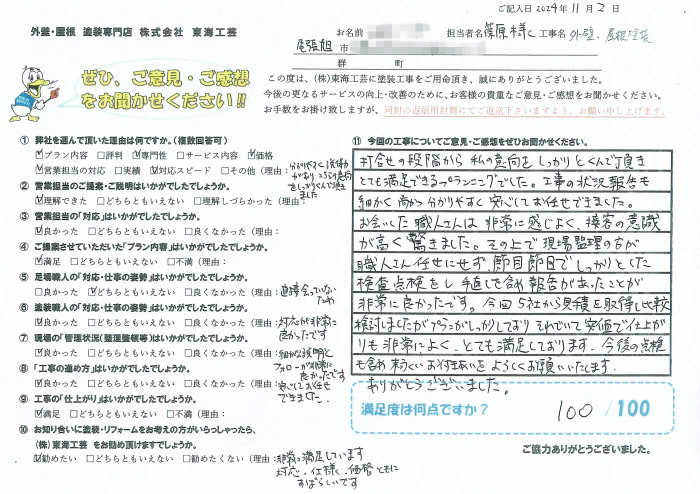 ご記入日 2024年 11月 2日
外壁・屋根 塗装専門店 株式会社 東海工芸
お名前 担当者名 篠原様 工事名 外壁・屋根塗装
尾張旭 市
群 町
ぜひ、ご意見・ご感想
をお聞かせください!!
この度は、(株)東海工芸に塗装工事をご用命頂き、誠にありがとうございました。
今後の更なるサービスの向上・改善のために、お客様の貴重なご意見・ご感想をお聞かせください。
お手数をお掛け致しますが、同封の返信用封筒にてご返送下さいますよう、お願い申し上げます。
① 弊社を選んで頂いた理由は何ですか。(複数回答可)
☑プラン内容 □評判 ☑専門性 □サービス内容 ☑価格
☑営業担当の対応 □実績 ☑対応スピード □その他(理由:
② 営業担当のご提案・ご説明はいかがでしたでしょうか。
☑理解できた □どちらともいえない □理解しづらかった(理由:
③ 営業担当の「対応」はいかがでしたでしょうか。
☑良かった □どちらともいえない □良くなかった(理由:
④ ご提案させていただいた「プラン内容」はいかがでしたでしょうか。
☑満足 □どちらともいえない □不満(理由:
⑤ 足場職人の「対応・仕事の姿勢」はいかがでしたでしょうか。
□良かった ☑どちらともいえない □良くなかった(理由:直接会っていないため
⑥ 塗装職人の「対応・仕事の姿勢」はいかがでしたでしょうか。
☑良かった □どちらともいえない □良くなかった(理由:対応が非常に良かったです
⑦ 現場の「管理状況(整理整頓等)」はいかがでしたでしょうか。
☑良かった □どちらともいえない □良くなかった(理由:
⑧ 「工事の進め方」はいかがでしたでしょうか。
☑良かった □どちらともいえない □良くなかった(理由:
⑨ 工事の「仕上がり」はいかがでしたでしょうか。
☑満足 □どちらともいえない □不満(理由:
⑩ お知り合いに塗装・リフォームをお考えの方がいらっしゃったら、
(株)東海工芸 をお勧め頂けますでしょうか。
☑勧めたい □どちらともいえない □勧めたくない(理由:非常に満足しています
対応、仕様、価格ともに
すばらしいです
⑪ 今回の工事についてご意見・ご感想をぜひお聞かせください。
打合せの段階から私の意向をしっかりとくんで頂き
とても満足できるプランニングでした。工事の状況報告も
細かく尚かつ分かりやすく安心してお任せできました。
お会いした職人さんは非常に感じよく、接客の意識
が高く驚きました。その上で現場監理の方が
職人さん任せにせず、節目節目でしっかりとした
検査点検をし手直しも含め報告があったことが
非常に良かったです。今回5社から見積を取得し比較
検討しましたがプランがしっかりしておりそれでいて安価で仕上が
りも非常によく、とても満足しております。今後の点検
も含め末ながいお付き合いをよろしくお願いいたします。
ありがとうございました。
満足度は何点ですか? 100 /100
ご協力ありがとうございました。